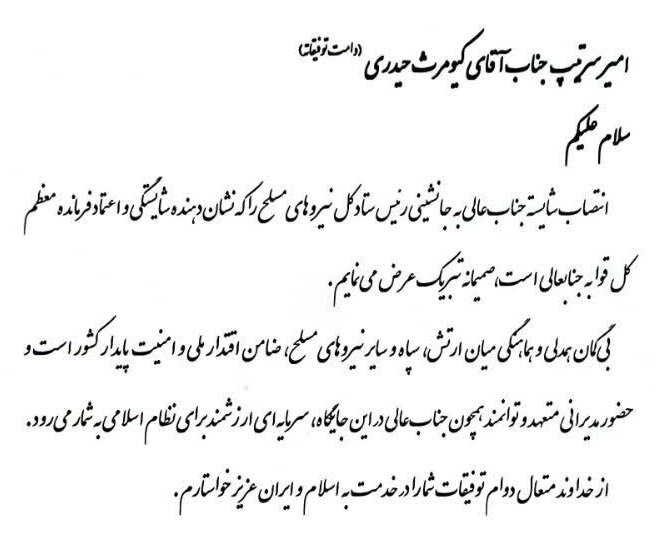 امیر سرتیپ جناب آقای کیومرث حیدری (دامت توفیقاته)
سلام علیکم
انتصاب شایسته جناب عالی به جانشینی رئیس ستاد کل نیروهای مسلح را که نشان دهنده شایستگی و اعتماد فرمانده معظم
کل قوا به جنابعالی است، صمیمانه تبریک عرض می نمایم.
بی گمان همدلی و هماهنگی میان ارتش، سپاه و سایر نیروهای مسلح، ضامن اقتدار ملی و امنیت پایدار کشور است و
حضور مدیرانی متعهد و توانمند همچون جناب عالی در این جایگاه، سرمایه ای ارزشمند برای نظام اسلامی به شمار می رود.
از خداوند متعال دوام توفیقات شما را در خدمت به اسلام و ایران عزیز خواستارم.